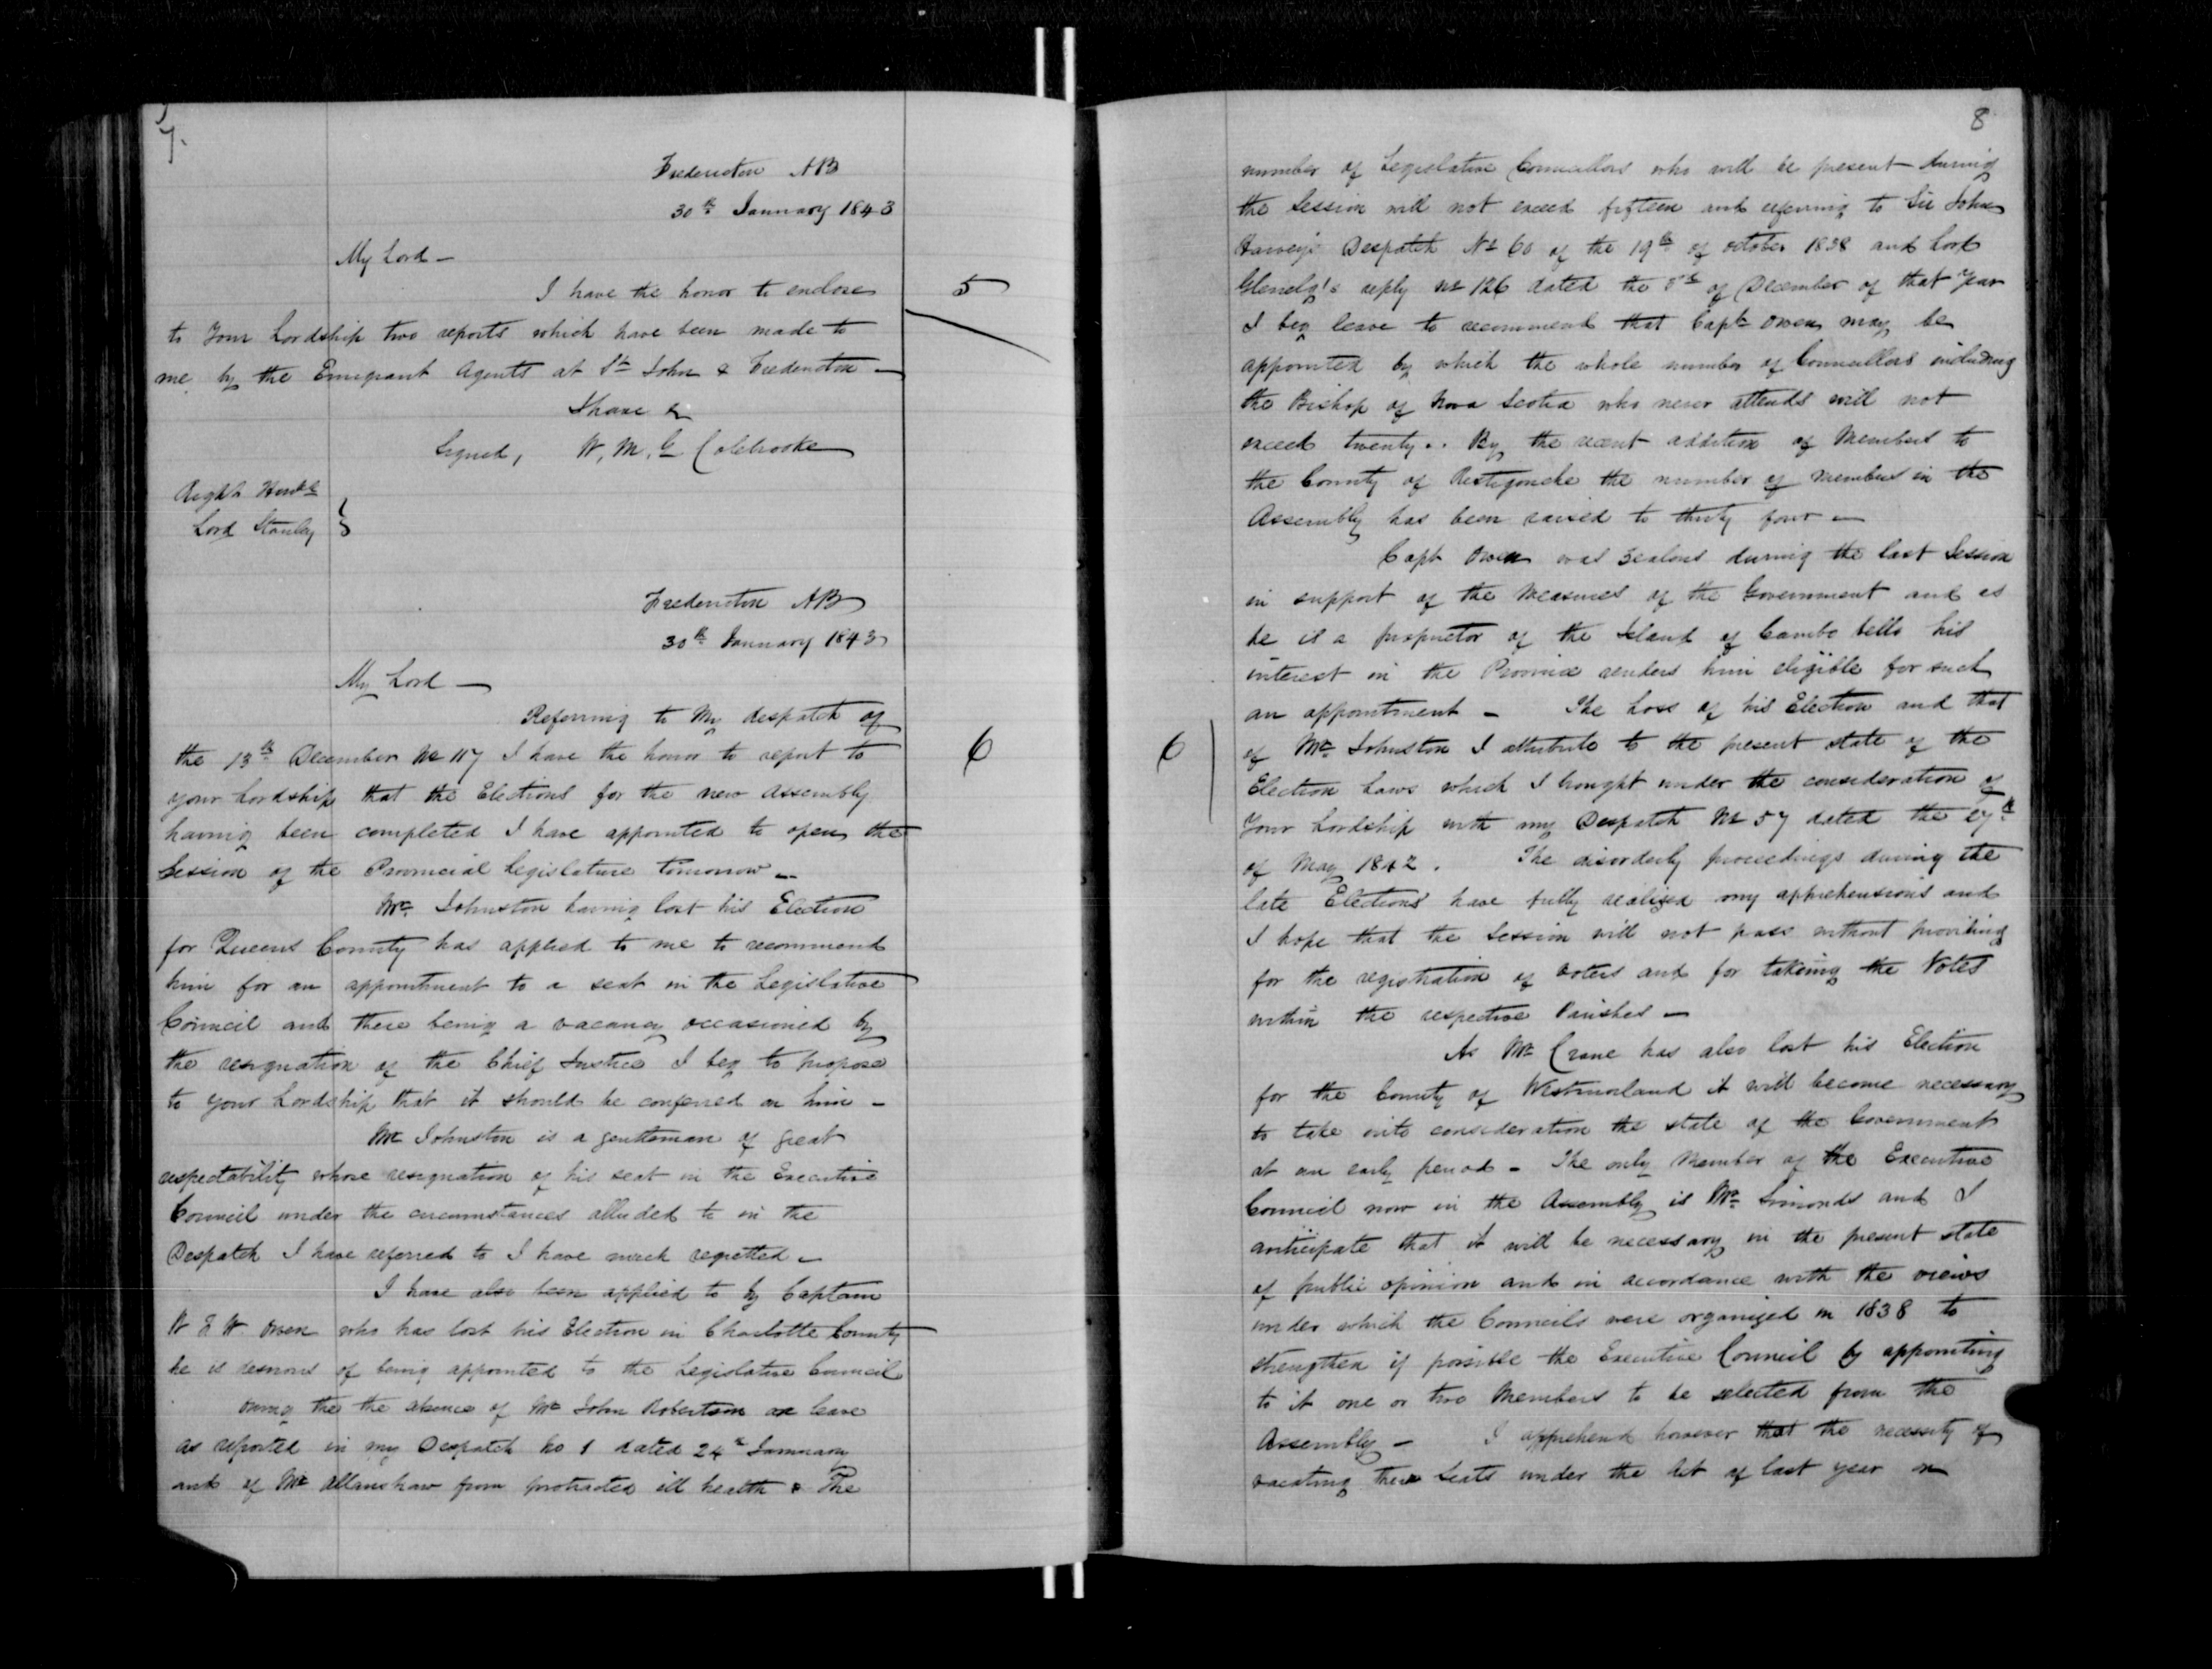 7.
Fredericton NB
30th January 1843
My Lord -
I have the honor to enclose
5
to Your Lordship two reports which have been made to
me by the Emigrant Agents at St John & Fredericton -
I have &c
Signed, W, M, G Colebrooke
Right Honble
Lord Stanley
Fredericton NB
30th January 1843
My Lord -
Referring to My despatch of
6
the 13th December No 117 I have the honor to report to
your Lordship that the Elections for the new Assembly
having been completed I have appointed to open the
Session of the Provincial Legislature tomorrow -
Mr. Johnston having lost his Election
for Queens County has applied to me to recommend
him for an appointment to a seat in the Legislative
Council and there being a vacancy occasioned by
the resignation of the Chief Justice I beg to propose
to your Lordship that it should be conferred on him -
Mr Johnston is a gentleman of great
respectability whose resignation of his seat in the Executive
Council under the circumstances alluded to in the
Despatch I have referred to I have much regretted -
I have also been applied to by Captain
W F W Owen who has lost his Election in Charlotte County
he is desirous of being appointed to the Legislative Council
Owing the the absence of Mr John Robertson on leave
as reported in my Despatch No 1 dated 24th January
and of Mr Allanshaw from protracted ill health & The
8
number of Legislative Councillors who will be present during
the Session will not exceed fifteen and referring to Sir John
Harvey's Despatch No 60 of the 19th of october 1838 and Lord
Glenelg's reply No 126 dated the of December of that Year
I beg leave to recommend that Capt Owen may be
appointed by which the whole number of Councillors including
the Bishop of Nova Scotia who never attends will not
exceed twenty.. By the recent addition of Members to
the County of Restigouche the number of members in the
Assembly has been raised to thirty four -
Capt Owen was zealous during the last Session
in support of the measures of the Government and as
he is a proprietor of the Island of Campo bello his
interest in the Province renders him eligible for such
an appointment - The Loss of his Election and that
6
of Mr Johnston I attribute to the present state of the
Election Laws which I brought under the consideration of
Your Lordship with my Despatch No 57 dated the 27th
of May 1842. The disorderly proceedings during the
late Elections have fully realized my apprehensions and
I hope that the Session will not pass without providing
for the registration of voters and for taking the Votes
within the respective Parishes -
As Mr Crane has also lost his Election
for the County of Westmorland it will become necessary
to take into consideration the state of the Government
at an early period - The only Member of the Executive
Council now in the Assembly is Mr. Simonds and I
anticipate that it will be necessary in the present state
of public opinion and in accordance with the views
under which the Councils were organized in 1838 to
strengthen if possible the Executive Council by appointing
to it one or two Members to be selected from the
Assembly - I apprehend however that the necessity of
vacating their Seats under the Act of last year on